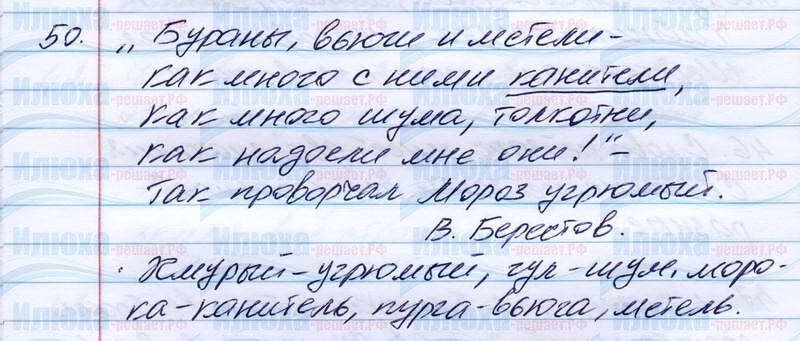 50. „Бураны, вьюги и метели –
как много с ними канители,
как много шума, толкотни,
как надоели мне они!“ –
Так проворчал Мороз угрюмый.
В. Берестов.
Хмурый – угрюмый, гул – шум, моро-
ка – канитель, пурга – вьюга, метель.